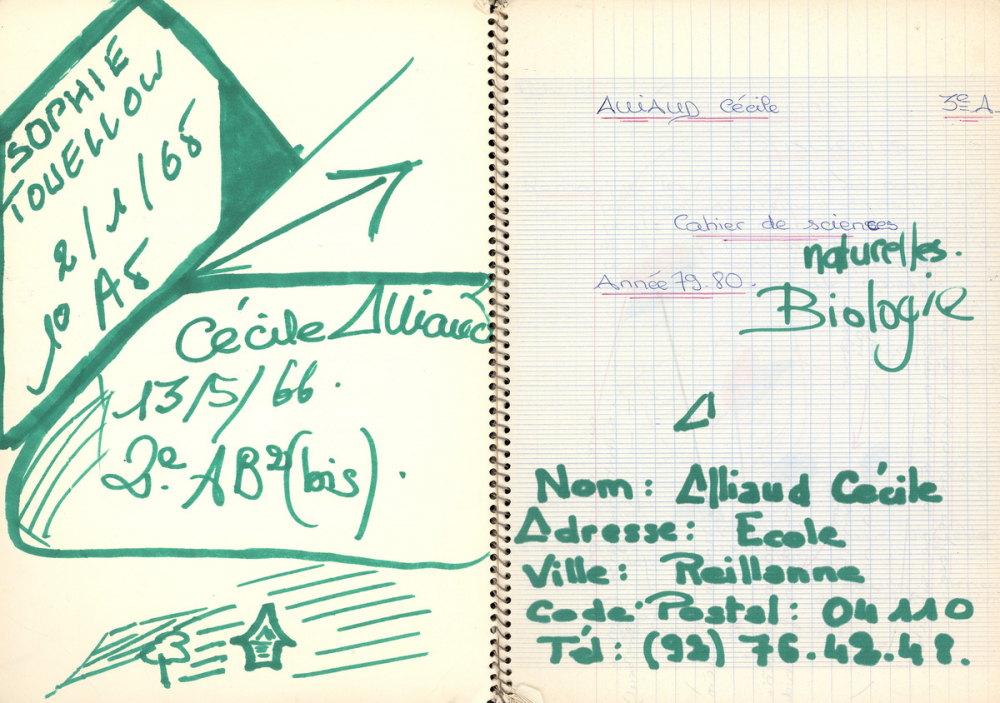 SOPHIE
TOUELLOW
2/1/65
1° A5
Cécile Alliaud
13/5/66.
2e. AB2 (bis).
Alliaud Cécile
3e A.
Cahier de sciences
naturelles.
Année 79.80.
Biologie
A
Nom: Alliaud Cécile
Adresse: Ecole
Ville: Reillanne
Code Postal: 04110
Tél: (92) 76.42.48.